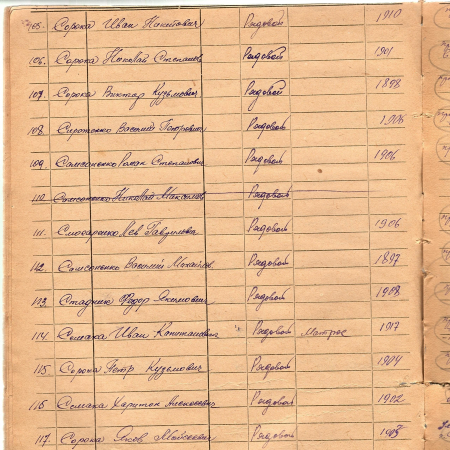 105. Сорока Иван Никитович Рядовой 1910
106. Сорока Николай Степанов Рядовой 1901
107. Сорока Виктор Кузьмович Рядовой 1898
108. Сиротенко Василий Петрович Рядовой 1906
109. Самсоненко Роман Степанович Рядовой 1906
110. Самсоненко Николай Максимов Рядовой
111. Слюсаренко Лев Гаврилович Рядовой 1906
112. Самсоненко Василий Михайлов. Рядовой 1897
113. Стадник Федор Рядовой 1908
114. Семака Иван Капитанович Рядовой Матрос 1917
115. Сорока Петр Кузьмович Рядовой 1904
116. Семака Харитон Алексеевич Рядовой 1902
117. Сорока Яков Рядовой